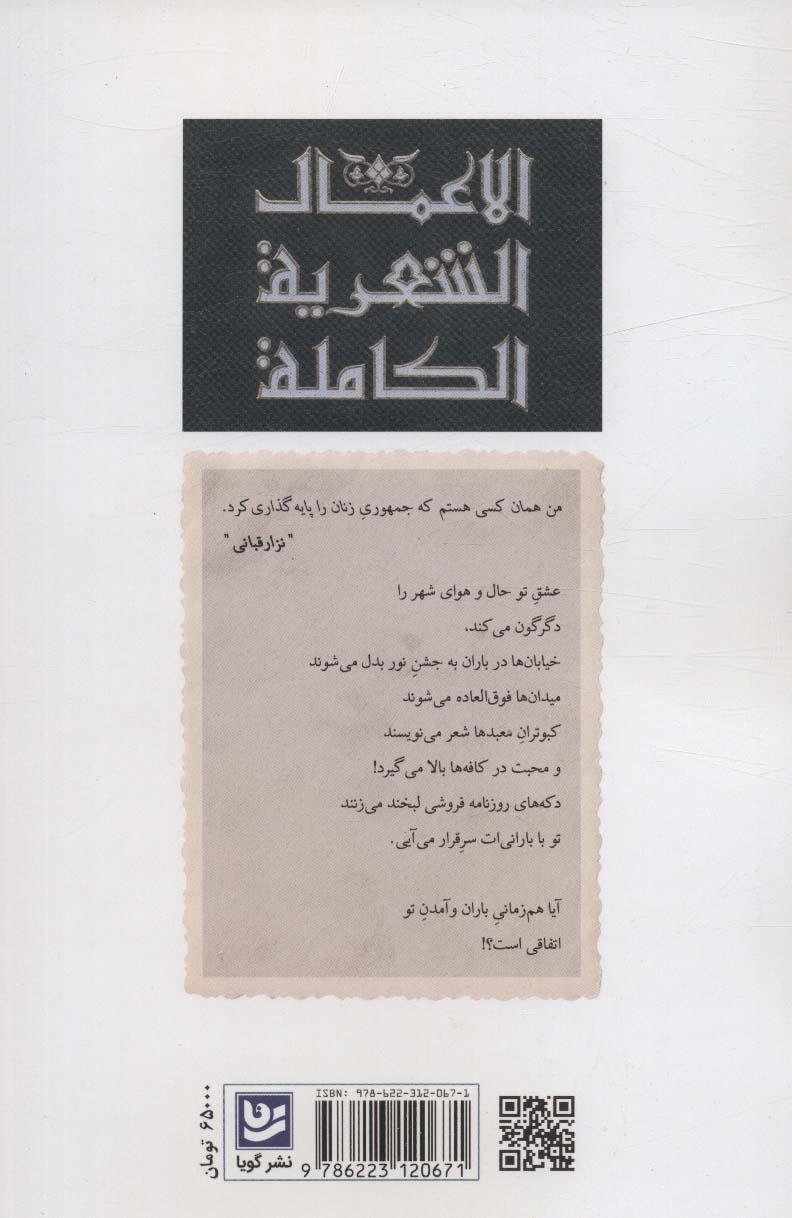 الاعمال
الشعرية
الكاملة
من همان کسی هستم که جمهوریِ زنان را پایه گذاری کرد.
"نزار قبانی"
عشقِ تو حال و هوای شهر را
دگرگون می‌کند،
خیابان‌ها در باران به جشنِ نور بدل می‌شوند
میدان‌ها فوق‌العاده می‌شوند
کبوترانِ معبدها شعر می‌نویسند
و محبت در کافه‌ها بالا می‌گیرد!
دکه‌های روزنامه فروشی لبخند می‌زنند
تو با بارانی‌ات سرِقرار می‌آیی.
آیا هم‌زمانیِ باران و آمدنِ تو
اتفاقی است؟!
۶۵۰۰۰ تومان
نشر گویا
ISBN: 978-622-312-067-1
9 786223 120671